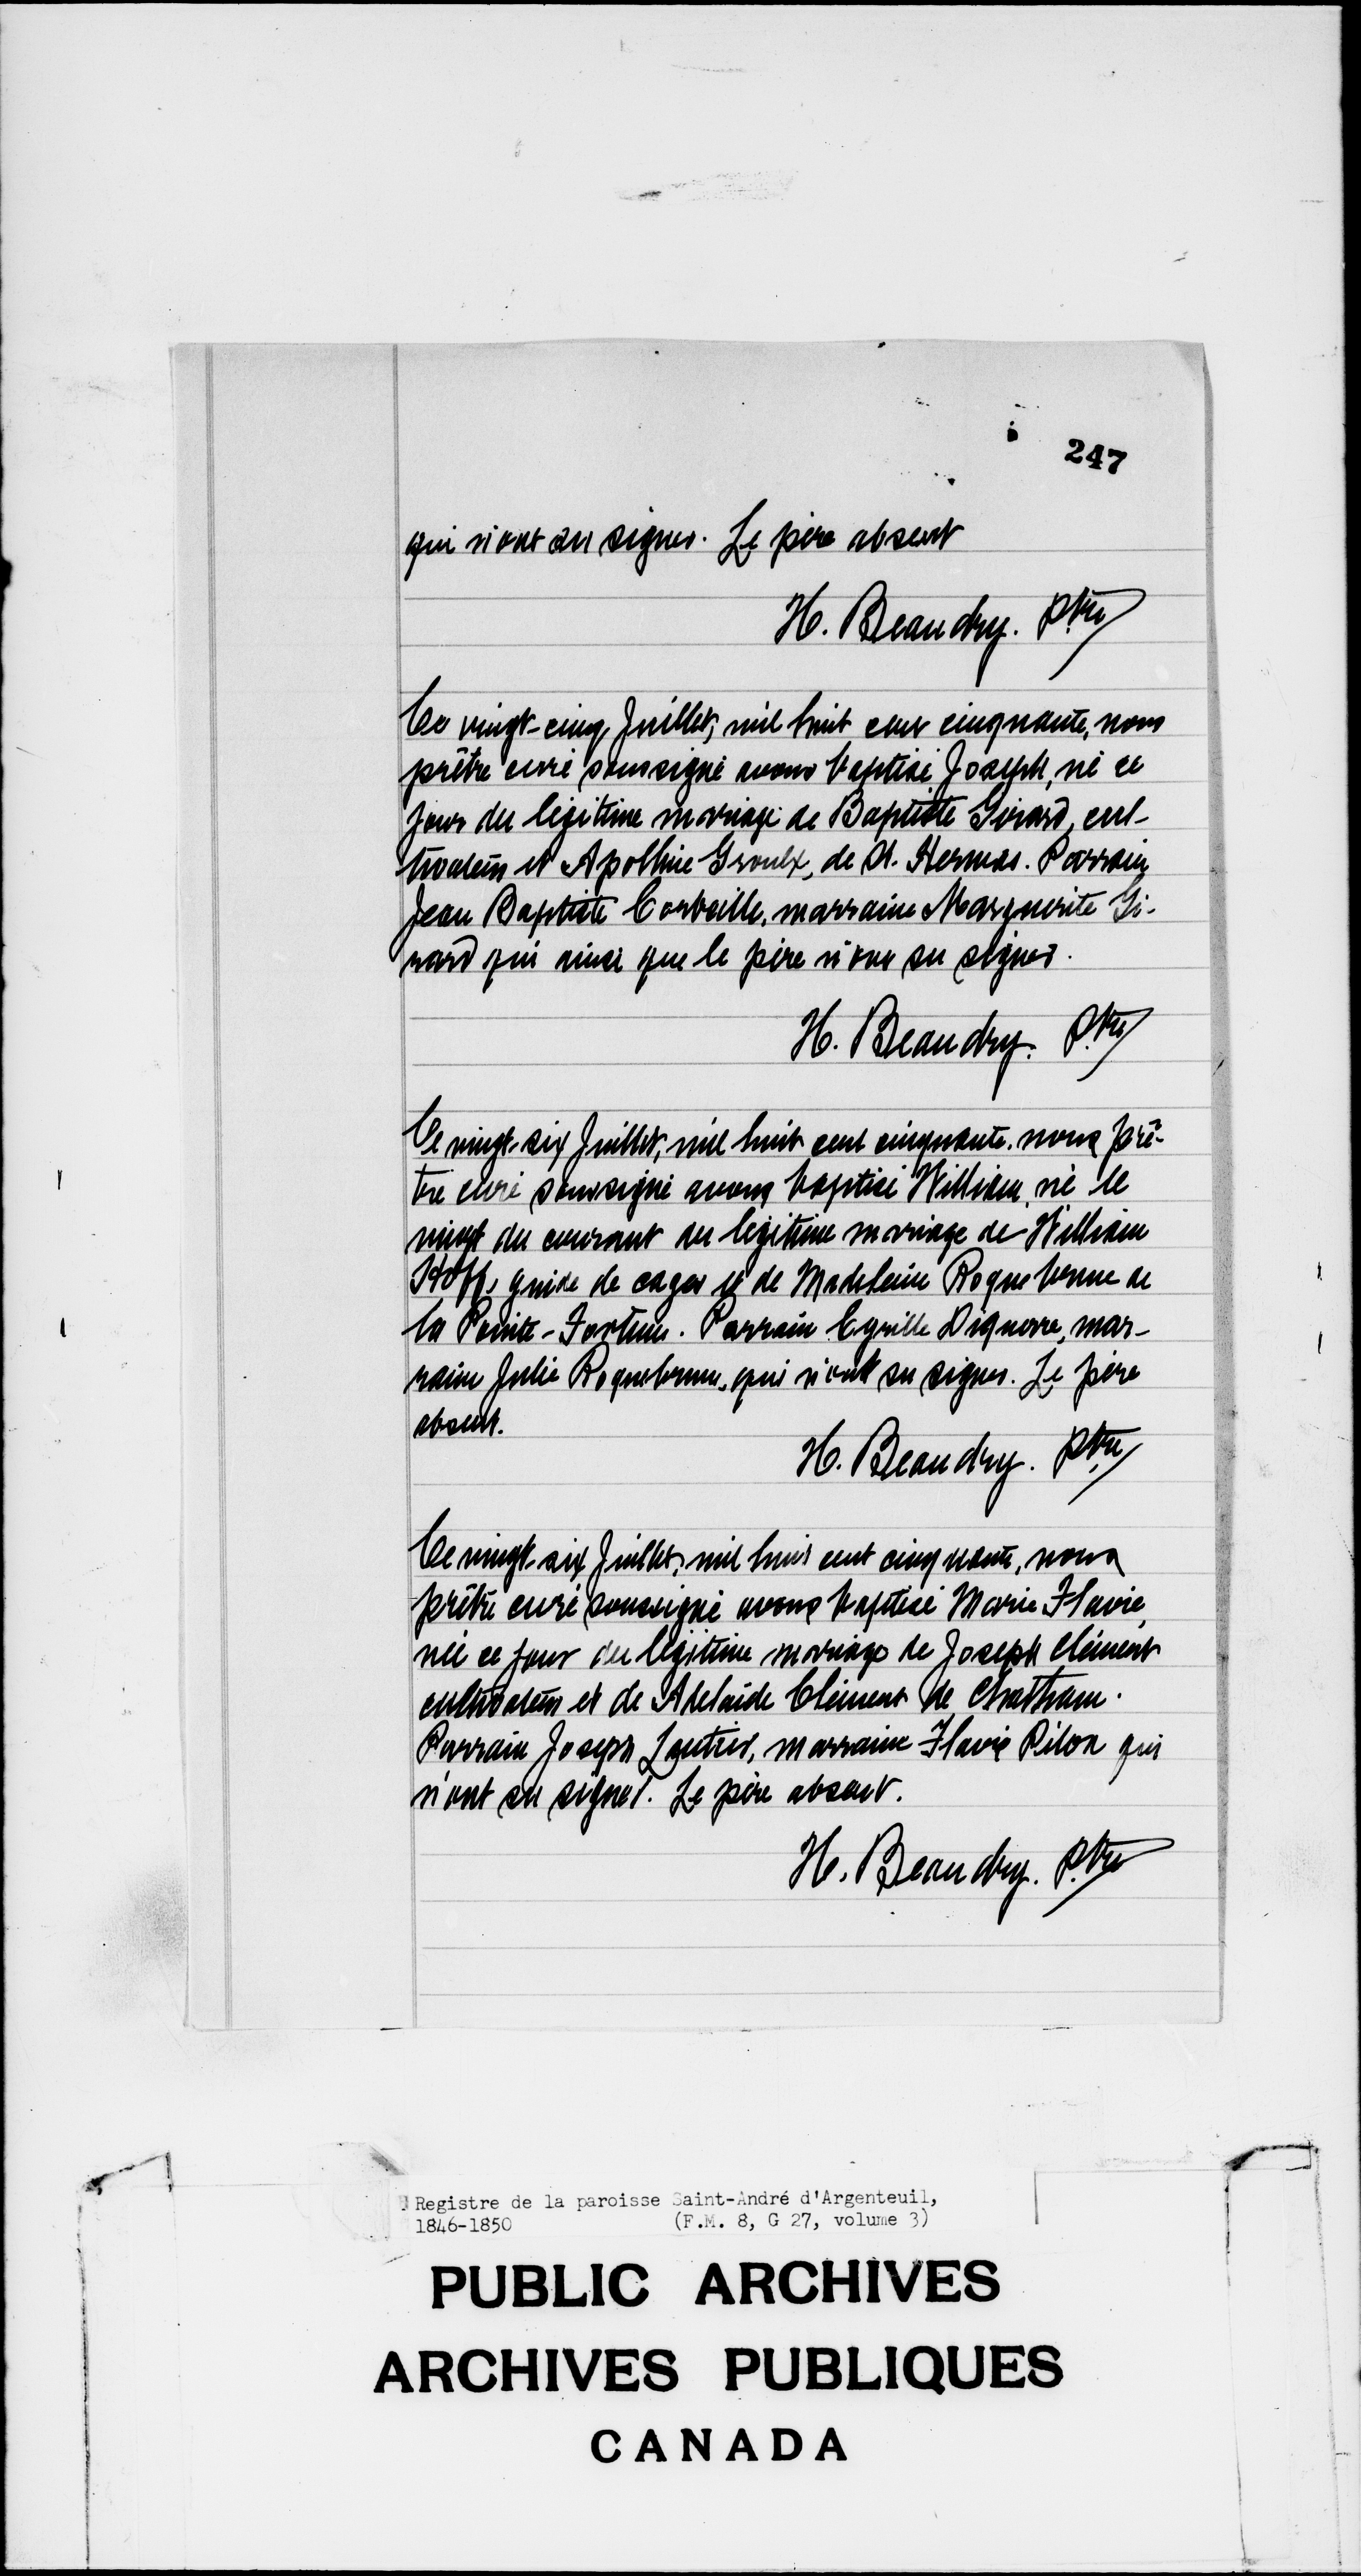 247
qui n'ont su signer. Le père absent
H. Beaudry. Ptre
Ce vingt-cinq Juillet, mil huit cent cinquante, nous
prêtre curé soussigné avons baptisé Joseph, né ce
jour du légitime mariage de Baptiste Girard, cul-
tivateur et Apolline Groulx, de St. Hermas. Parrain
Jean Baptiste Corbeille, marraine Marguerite Gi-
rard qui ainsi que le père n'ont su signer.
H. Beaudry. Ptre
Ce vingt-six Juillet, mil huit cent cinquante, nous prê-
tre curé soussigné avons baptisé William, né le
vingt du courant du légitime mariage de William
guide de cages et de Madeleine Roquebrune de
la Pointe-Fortune. Parrain Cyrille mar-
raine Julie Roquebrune, qui n'ont su signer. Le père
absent.
H. Beaudry. Ptre
Ce vingt-six Juillet, mil huit cent cinquante, nous
prêtre curé soussigné avons baptisé Marie Flavie,
née ce jour du légitime mariage de Joseph Clément
cultivateur et de Adelaïde Clément de Chatham.
Parrain Joseph marraine Flavie Pilon qui
n'ont su signer. Le père absent.
H. Beaudry. Ptre
Registre de la paroisse Saint-André d'Argenteuil,
1846-1850 (F.M. 8, G 27, volume 3)
PUBLIC ARCHIVES
ARCHIVES PUBLIQUES
CANADA